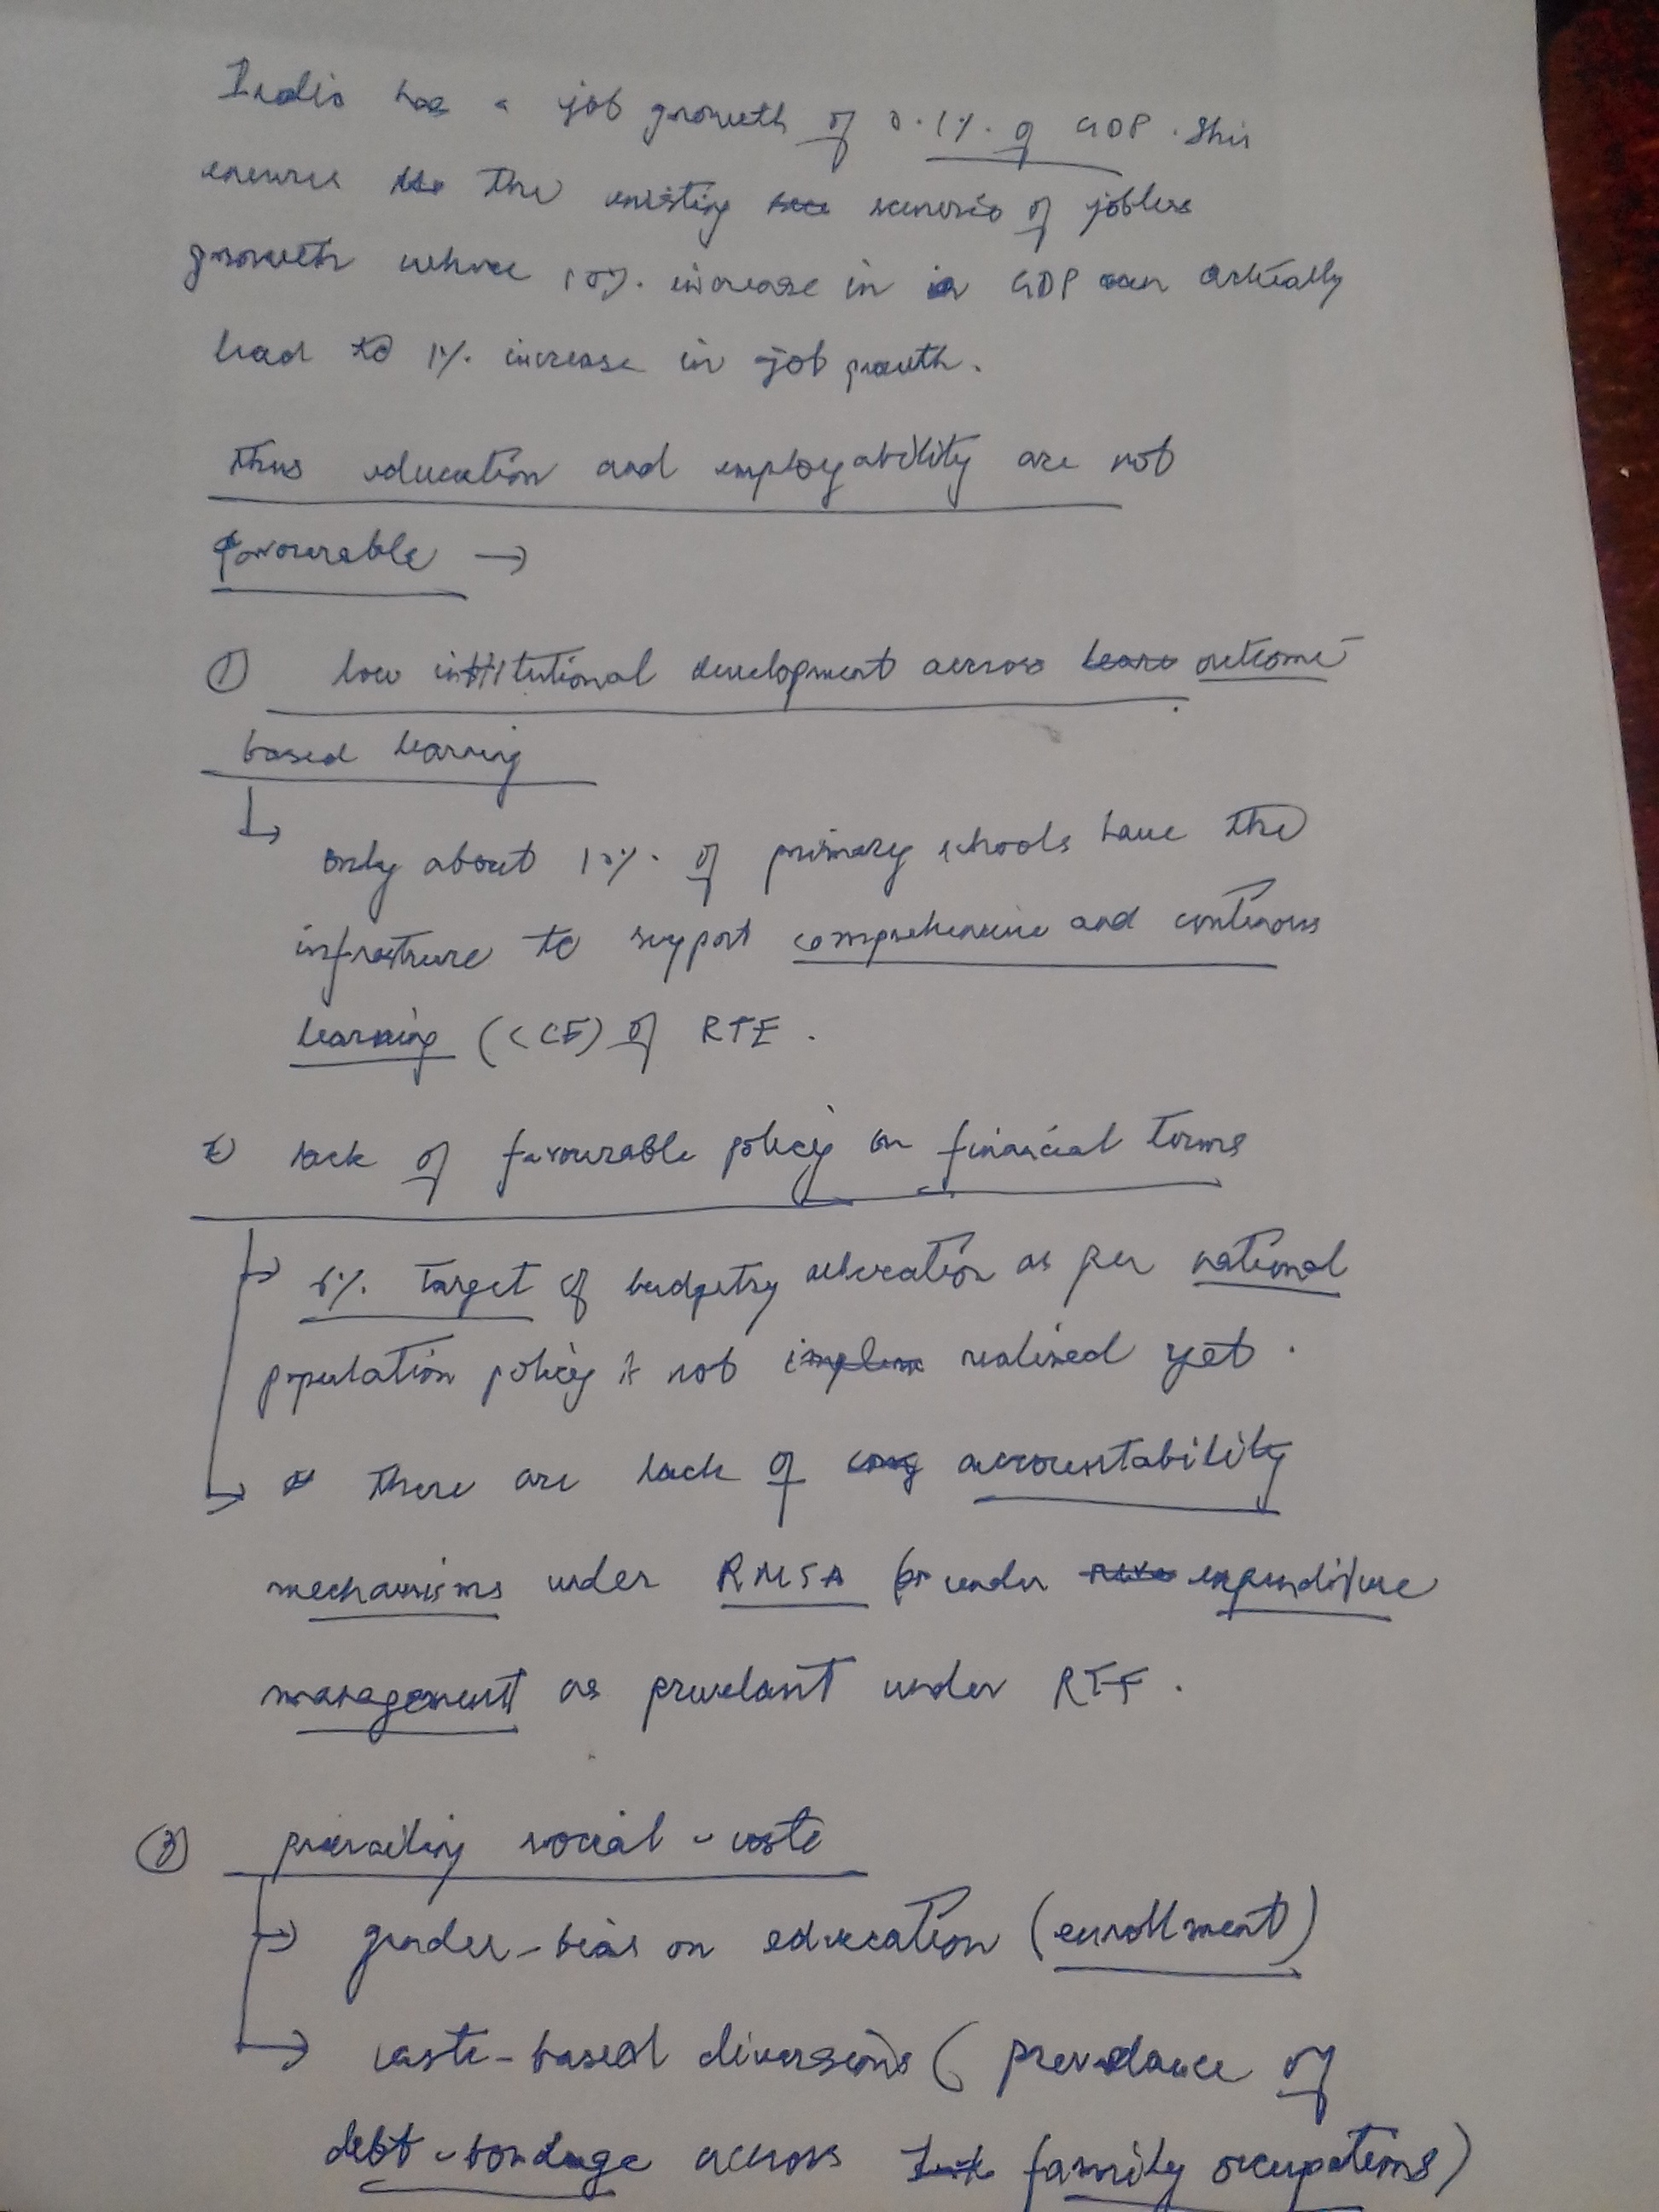 India has a job growth of 0.1% of GDP. This
ensures the existing scenerio of jobless
growth where 10% increase in GDP can actually
lead to 1% increase in job growth.
Thus education and employability are not
favourable →
① low institutional development across outcome
based learning
↳ only about 10% of primary schools have the
infrastrure to support comprehensive and continous
learning (CCE) of RTE.
2) lack of favourable policy on financial terms
→ 6% target of budgetry allocation as per national
population policy is not realised yet.
→ there are lack of accountability
mechanisms under RMSA or under expenditure
management as prevelant under RTE.
③ prevailing social-caste
→ gender-bias on education (enrollment)
→ caste-based diversions (prevelance of
debt-bondage across family occupations)